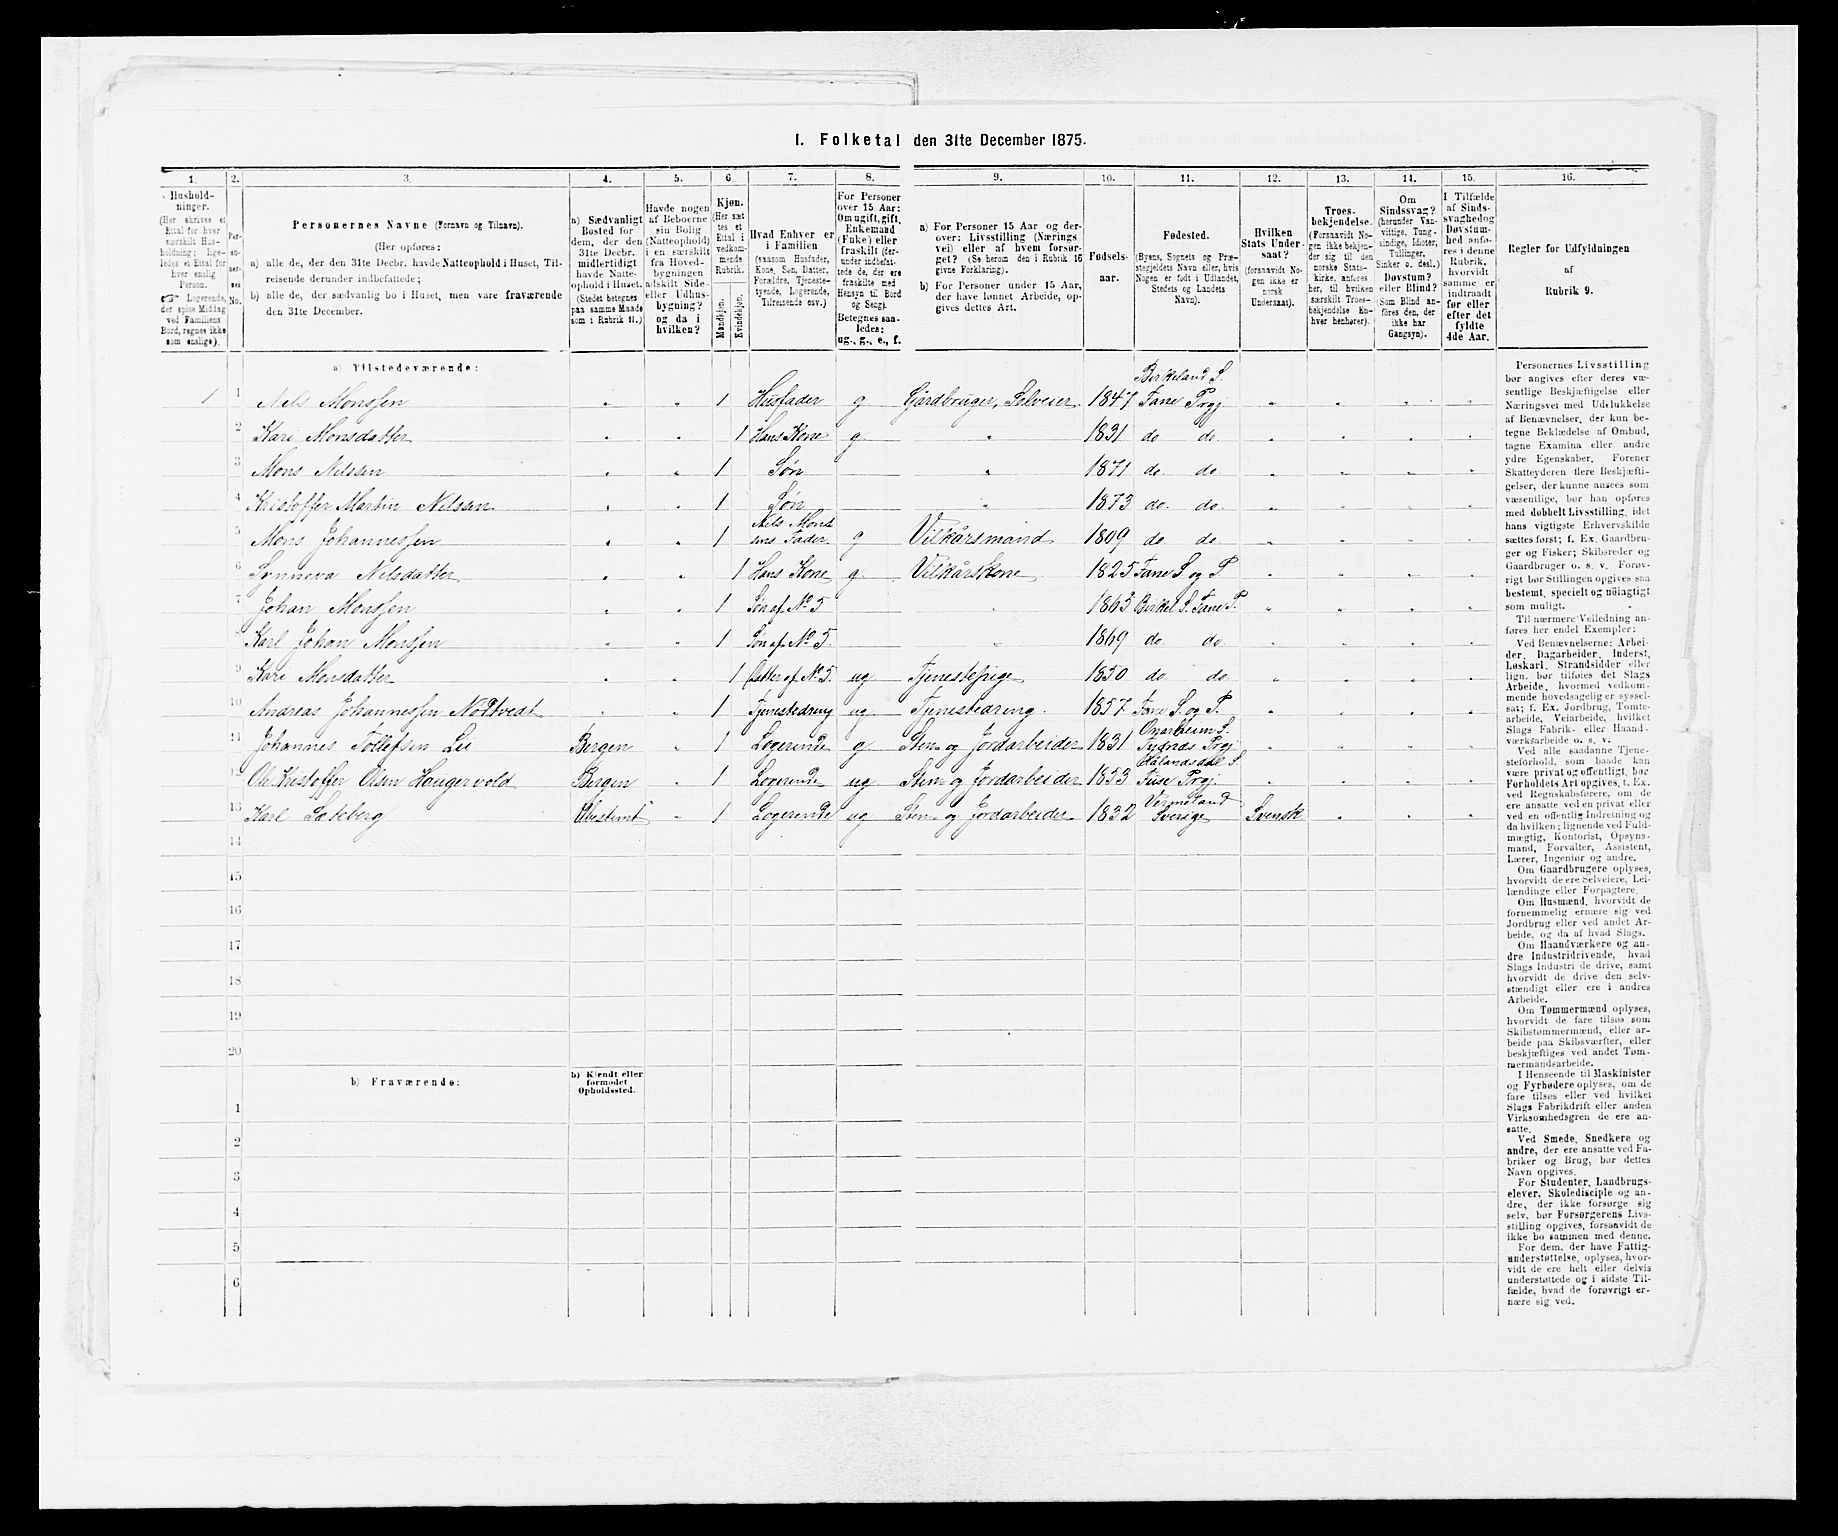 I. Folketal den 31te December 1875.
1. 2. 3. 4. 5. 6. 7. 8. 9. 10. 11. 12. 13. 14. 15. 16.
Hushold-
ninger.
(Her skrives et
Ettal for hver
særskilt Hus-
holdning; lige-
ledes et Ettal for
hver enslig
Person.
☞ Logerende,
der spise Middag
ved Familiens
Bord, regnes ikke
som enslige).
Per-
so-
ner-
nes
No.
Personernes Navne (Fornavn og Tilnavn).
(Her opføres:
a) alle de, der den 31te Decbr. havde Natteophold i Huset, Til-
reisende derunder indbefattede;
b) alle de, der sædvanlig bo i Huset, men vare fraværende
den 31te December.
a) Sædvanligt
Bosted for
dem, der den
31te Decbr.
midlertidigt
havde Natte-
ophold i Huset.
(Stedet betegnes
paa samme Maade
som i Rubrik 11.)
Havde nogen
af Beboerne
sin Bolig
(Natteophold)
i en særskilt
fra Hoved-
bygningen
adskilt Side-
eller Udhus-
bygning?
og da i
hvilken?
Kjøn.
(Her sæt-
tes et
Ettal i
vedkom-
mende
Rubrik.
Mandkjøn.
Kvindekjøn.
Hvad Enhver er
i Familien
(saasom Husfader,
Kone, Søn, Datter,
Forældre, Tjeneste-
tyende, Logerende,
Tilreisende osv.)
For Personer
over 15 Aar:
Om ugift, gift,
Enkemand
(Enke) eller
fraskilt (der-
under indbefat-
tede de, der ere
fraskilte med
Hensyn til Bord
og Seng).
Betegnes saa-
ledes:
ug., g., e., f.
a) For Personer 15 Aar og der-
over: Livsstilling (Nærings
vei) eller af hvem forsør-
get? (Se herom den i Rubrik 16
givne Forklaring).
b) For Personer under 15 Aar,
der have lønnet Arbeide, op-
gives dettes Art.
Fødsels-
aar.
Fødested.
(Byens, Sognets og Præ-
stegjeldets Navn eller, hvis
Nogen er født i Udlandet,
Stedets og Landets
Navn).
Hvilken
Stats Under-
saat?
(forsaavidt No-
gen ikke er
norsk
Undersaat).
Troes-
bekjendelse.
(Forsaavidt No-
gen ikke bekjen-
der sig til den
norske Stats-
kirke, anføres
her, til hvilken
særskilt Troes-
bekjendelse En-
hver henhører).
Om
Sindssvag?
(herunder Van-
vittige, Tung-
sindige, Idioter,
Tullinger,
Sinker o. desl.)
Døvstum?
eller Blind?
(Som Blind an-
føres den, der
ikke har
Gangsyn).
I Tilfælde
af Sinds-
svaghed og
Døvstum-
hed anfø-
res i denne
Rubrik,
hvorvidt
samme er
indtraadt
før eller
efter det
fyldte
4de Aar.
Regler for Udfyldningen
af
Rubrik 9.
a) Tilstedeværende:
1 1 Nels Monssen „ „ 1 Husfader g Gårdbruger, Selveier 1847 Birkeland S. Fane Prgj. „ „ „ „
2 Kari Monsdatter „ „ 1 Hans Kone g. „ 1831 do do. „ „ „ „
3 Mons Nilssen „ „ 1 Søn „ 1871 do do. „ „ „ „
4 Kristoffer Martin Nilssen „ „ 1 Søn „ 1873 do. do. „ „ „ „
5 Mons Johannessen „ „ 1 Nils Mons sens Fader. g Vilkårsmand 1809 do do. „ „ „ „
6 Synneva Nilsdatter „ „ 1 Hans Kone g. Vilkårskone 1825 Fane S og P. „ „ „ „
7 Johan Monssen „ „ 1 Søn af No 5 „ 1865 Birkel S. Fane P. „ „ „ „
8 Karl Johan Monssen „ „ 1 Søn af No 5. „ 1869 do. do. „ „ „ „
9 Kari Monsdatter „ „ 1 Datter af No 5. ug Tjenestepige 1850 do. do. „ „ „ „
10 Andreas Johannessen Nødtvedt „ „ 1 Tjenestedreng ug Tjenestedreng. 1857 Fane S. og P. „ „ „ „
11 Johannes Tollefsen Lei Bergen „ 1 Logerende g. Sten- og Jordarbeider 1831 Onarheim S. Tysnds Prgj. „ „ „ „
12 Ole Kristoffer Olsen Haugervold Bergen „ 1 Logerende ug Sten- og Jordarbeider 1853 Hålandsdal S Fuse Prgj. „ „ „ „
13 Karl Sæteberg Ubestemt „ 1 Logerende ug Sten- og Jordarbeider 1832 Vermeland Sverige Svensk „ „ „
14
15
16
17
18
19
20
b) Fraværende:
b) Kjendt eller
formodet
Opholdssted.
1
2
3
4
5
6
Personernes Livsstilling
bør angives efter deres væ-
sentlige Beskjæftigelse eller
Næringsvei med Udelukkelse
af Benævnelser, der kun be-
tegne Beklædelse af Ombud,
tagne Examina eller andre
ydre Egenskaber. Forener
Skatteyderen flere Beskjæfti-
gelser, der kunne ansees som
væsentlige, bør han opføres
med dobbelt Livsstilling, idet
hans vigtigste Erhvervskilde
sættes først; f. Ex. Gaardbru-
ger og Fisker; Skibsreder og
Gaardbruger o. s. v. Forøv-
rigt bør Stillingen opgives saa
bestemt, specielt og nöiagtigt
som muligt.
Til nærmere Veiledning an-
føres her endel Exempler:
Ved Benævnelserne: Arbei-
der, Dagarbeider, Inderst,
Løskarl, Strandsidder eller
lign. bør tilføies det Slags
Arbeide, hvormed vedkom-
mende hovedsagelig er syssel-
sat; f. Ex. Jordbrug, Tomte-
arbeide, Veiarbeide, hvilket
Slags Fabrik- eller Haand-
værksarbeide o. s. v.
Ved alle saadanne Tjene-
steforhold, som baade kan
være privat og offentligt, bør
Forholdets Art opgives, t. Ex.
ved Regnskabsførere, om de
ere ansatte ved en privat eller
ved en offentlig Indretning og
da hvilken; lignende ved Fuld-
mægtig, Kontorist, Opsyns-
mand, Forvalter, Assistent,
Lærer, Ingeniør og andre.
Om Gaardbrugere oplyses,
hvorvidt de ere Selveiere, Lei-
lændinge eller Forpagtere.
Om Husmænd, hvorvidt de
fornemmelig ernære sig ved
Jordbrug eller ved andet Ar-
beide, og da af hvad Slags.
Om Haandværkere og an-
dre Industridrivende, hvad
Slags Industri de drive, samt
hvorvidt de drive den selv-
stændigt eller ere i andres
Arbeide.
Om Tømmermænd oplyses,
hvorvidt de fare tilsøs som
Skibstømmermænd, eller ar-
beide paa Skibsværfter, eller
beskjæftiges ved andet Tøm-
mermandsarbeide.
I Henseende til Maskinister
og Fyrbødere oplyses, om de
fare tilsøs eller ved hvilket
Slags Fabrikdrift eller anden
Virksomhedsgren de ere an-
satte.
Ved Smede, Snedkere og
andre, der ere ansatte ved Fa-
briker og Brug, bør dettes
Navn opgives.
For Studenter, Landbrugs-
elever, Skoledisciple og an-
dre, der ikke forsørge sig
selv, bør Forsørgerens Livs-
stilling opgives, forsaavidt de
ikke bo sammen med denne.
For dem, der have Fattig-
understøttelse, oplyses, hvor-
vidt de ere helt eller delvis
understøttede og i sidste Til-
fælde, hvad de forøvrigt er-
nære sig ved.